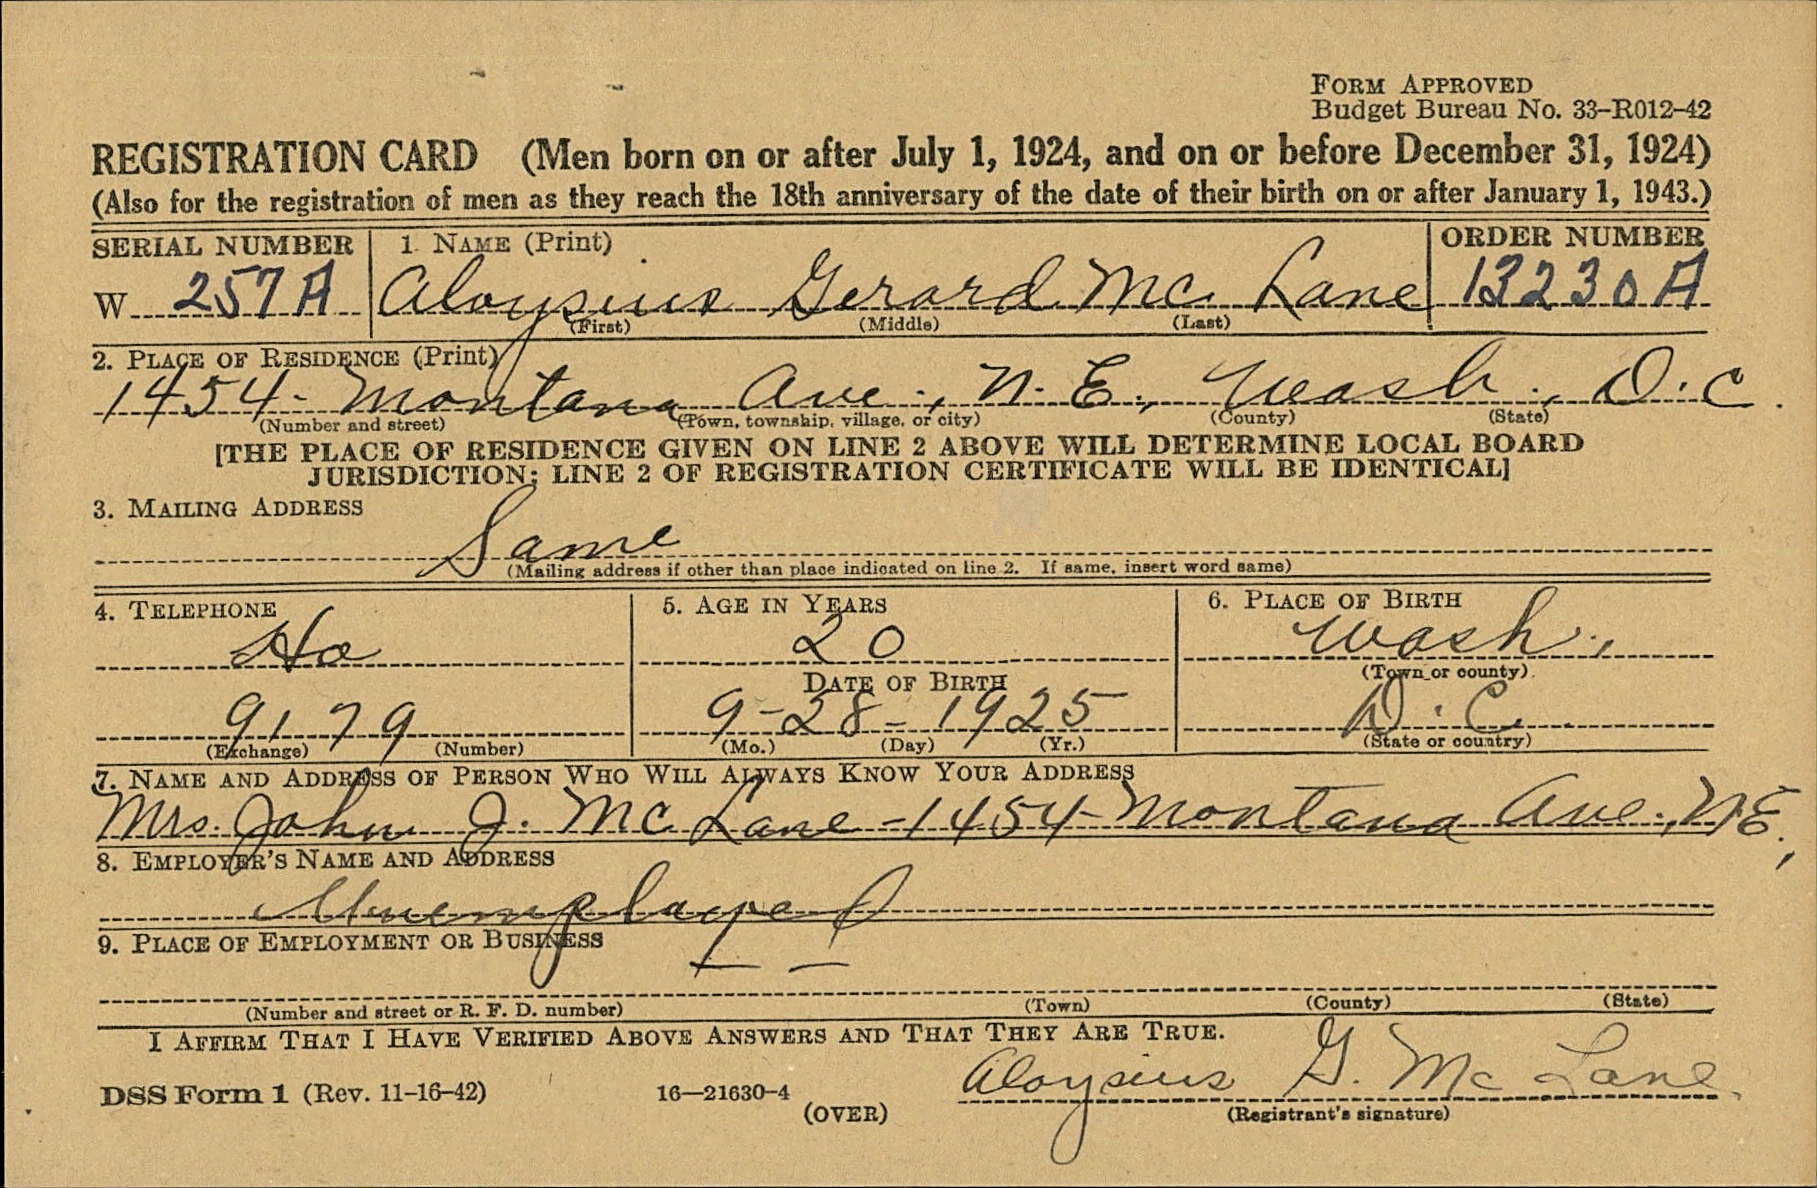 FORM APPROVED
Budget Bureau No. 33-R012-42
REGISTRATION CARD (Men born on or after July 1, 1924, and on or before December 31, 1924)
(Also for the registration of men as they reach the 18th anniversary of the date of their birth on or after January 1, 1943.)
SERIAL NUMBER 1. NAME (Print) ORDER NUMBER
W 257A Aloysius Gerard Mc Lane 13230A
(First) (Middle) (Last)
2. PLACE OF RESIDENCE (Print)
1454- Montana Ave., N. E., Wash., D.C.
(Number and street) (Town, township, village, or city) (County) (State)
[THE PLACE OF RESIDENCE GIVEN ON LINE 2 ABOVE WILL DETERMINE LOCAL BOARD
JURISDICTION; LINE 2 OF REGISTRATION CERTIFICATE WILL BE IDENTICAL]
3. MAILING ADDRESS
Same
(Mailing address if other than place indicated on line 2. If same, insert word same)
4. TELEPHONE 5. AGE IN YEARS 6. PLACE OF BIRTH
Ho 20 Wash.,
DATE OF BIRTH (Town or county)
9179 9-28-1925 D.C.
(Exchange) (Number) (Mo.) (Day) (Yr.) (State or country)
7. NAME AND ADDRESS OF PERSON WHO WILL ALWAYS KNOW YOUR ADDRESS
Mrs. John J. Mc Lane-1454-Montana Ave., N.E.,
8. EMPLOYER'S NAME AND ADDRESS
Unemployed
9. PLACE OF EMPLOYMENT OR BUSINESS
— —
(Number and street or R. F. D. number) (Town) (County) (State)
I AFFIRM THAT I HAVE VERIFIED ABOVE ANSWERS AND THAT THEY ARE TRUE.
DSS Form 1 (Rev. 11-16-42) 16—21630-4 (OVER) Aloysius G. Mc Lane
(Registrant's signature)